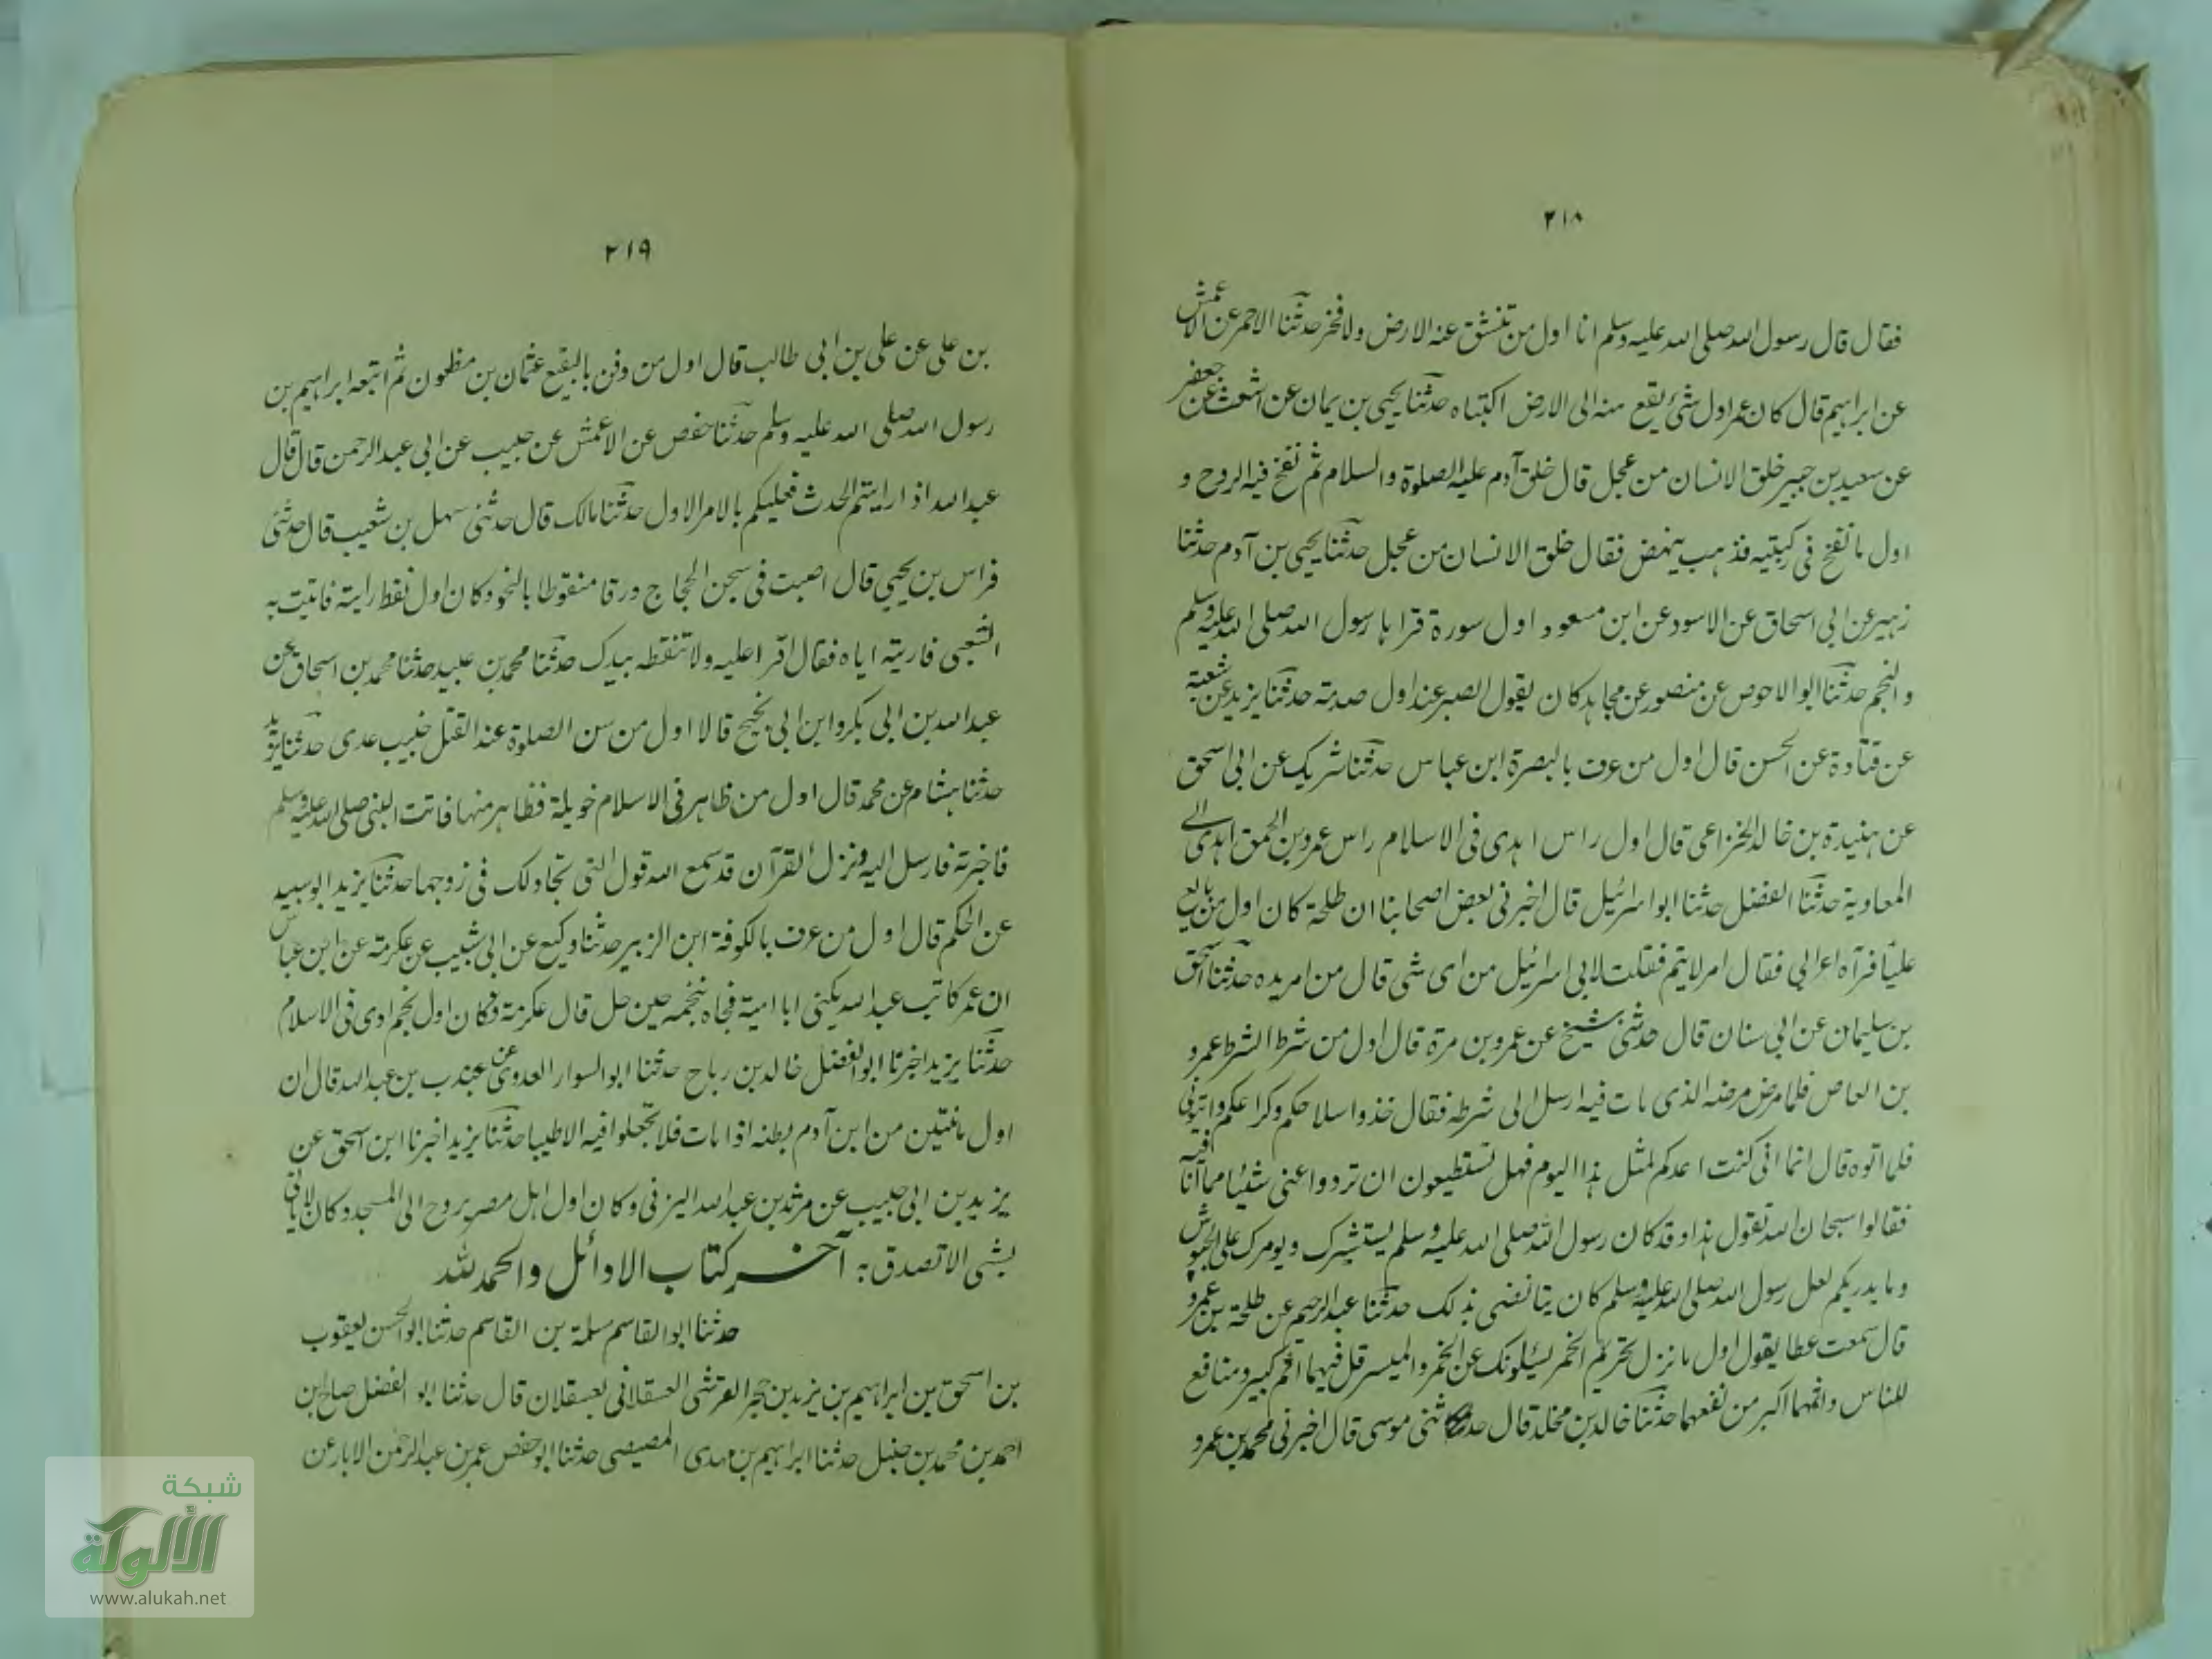 ٢١٨
فقال قال رسول الله صلى الله عليه وسلم انا اول من تنشق عنه الارض ولا فخر حدثنا الاحمر عن الاعمش
عن ابراهيم قال كان عمر اول شئ يقع منه الى الارض اكتباه حدثنا يحيى بن يمان عن اشعث عن جعفر
عن سعيد بن جبير خلق الانسان من عجل قال خلق آدم عليه الصلوة والسلام ثم نفخ فيه الروح و
اول ما نفخ فى ركبتيه فذهب ينهض فقال خلق الانسان من عجل حدثنا يحيى بن آدم حدثنا
زهير عن ابى اسحاق عن الاسود عن ابن مسعود اول سورة قراها رسول الله صلى الله عليه وسلم
والنجم حدثنا ابو الاحوص عن منصور عن مجاهد كان يقول الصبر عند اول صدمة حدثنا يزيد عن شعبة
عن قتادة عن الحسن قال اول من عرف بالبصرة ابن عباس حدثنا شريك عن ابى اسحق
عن هنيدة بن خالد الخزاعى قال اول راس اهدى فى الاسلام راس عمرو بن الحمق اهدى الى
المعاوية حدثنا الفضل حدثنا ابو اسرائيل قال اخبرنى بعض اصحابنا ان طلحة كان اول من بايع
عليا فرآه اعرابى فقال امر لا يتم فقلت لابى اسرائيل من اى شى قال من امر يده حدثنا اسحق
بن سليمان عن ابى سنان قال حدثنى شيخ عن عمرو بن مرة قال اول من شرط الشرط عمرو
بن العاص فلما مرض مرضه الذى مات فيه ارسل الى شرطه فقال خذوا سلاحكم وكراعكم واتونى
فلما اتوه قال انما انى كنت اعدكم لمثل هذا اليوم فهل تستطيعون ان تردوا عنى شيئا مما انا فيه
فقالوا سبحان الله تقول هذا وقد كان رسول الله صلى الله عليه وسلم يستشيرك ويومرك على الجيوش
وما يدريكم لعل رسول الله صلى الله عليه وسلم كان يتالفنى بذلك حدثنا عبد الرحيم عن طلحة بن عمرو
قال سمعت عطا يقول اول ما نزل تحريم الخمر يسئلونك عن الخمر والميسر قل فيهما اثم كبير ومنافع
للناس واثمهما اكبر من نفعهما حدثنا خالد بن مخلد قال حدثنى موسى قال اخبرنى محمد بن عمرو
٢١٩
بن على عن على بن ابى طالب قال اول من دفن بالبقيع عثمان بن مظعون ثم اتبعه ابراهيم بن
رسول الله صلى الله عليه وسلم حدثنا حفص عن الاعمش عن حبيب عن ابى عبد الرحمن قال قال
عبد الله اذا رايتم الحدث فعليكم بالامر الاول حدثنا مالك قال حدثنى سهل بن شعيب قال حدثنى
فراس بن يحيى قال اصبت فى سجن الحجاج ورقا منقوطا بالنحو وكان اول نقط رايته فاتيت به
الشعبى فاريته اياه فقال اقرا عليه ولا تنقطه بيدك حدثنا محمد بن عبيد حدثنا محمد بن اسحاق عن
عبد الله بن ابى بكر وابن ابى نجيح قالا اول من سن الصلوة عند القتل خبيب عدى حدثنا يزيد
حدثنا هشام عن محمد قال اول من ظاهر فى الاسلام خويلة فظاهر منها فاتت النبى صلى الله عليه وسلم
فاخبرته فارسل اليه ونزل القرآن قد سمع الله قول التى تجادلك فى زوجها حدثنا يزيد ابو سبيد
عن الحكم قال اول من عرف بالكوفة ابن الزبير حدثنا وكيع عن ابى شبيب عن عكرمة عن ابن عباس
ان عمر كاتب عبد الله يكنى ابا امية فجاه بنجمه حين حل قال عكرمة فكان اول نجم ادى فى الاسلام
حدثنا يزيد اخبرنا ابو الفضل خالد بن رباح حدثنا ابو السوار العدوى عن جندب بن عبد الله قال ان
اول ما ينتن من ابن آدم بطنه اذا مات فلا تجعلوا فيه الا طيبا حدثنا يزيد اخبرنا ابن اسحق عن
يزيد بن ابى حبيب عن مرثد بن عبد الله اليزنى وكان اول اهل مصر يروح الى المسجد وكان لا ياتى
بشى الا تصدق : آخر كتاب الاوائل والحمد لله
حدثنا ابو القاسم سلمة بن القاسم حدثنا ابو الحسن يعقوب
بن اسحق بن ابراهيم بن يزيد بن حجر القرشى العسقلانى بعسقلان قال حدثنا ابو الفضل صالح بن
احمد بن محمد بن حنبل حدثنا ابراهيم بن مهدى المصيصى حدثنا ابو حفص عمر بن عبد الرحمن الابار عن
شبكة
الألوكة
www.alukah.net